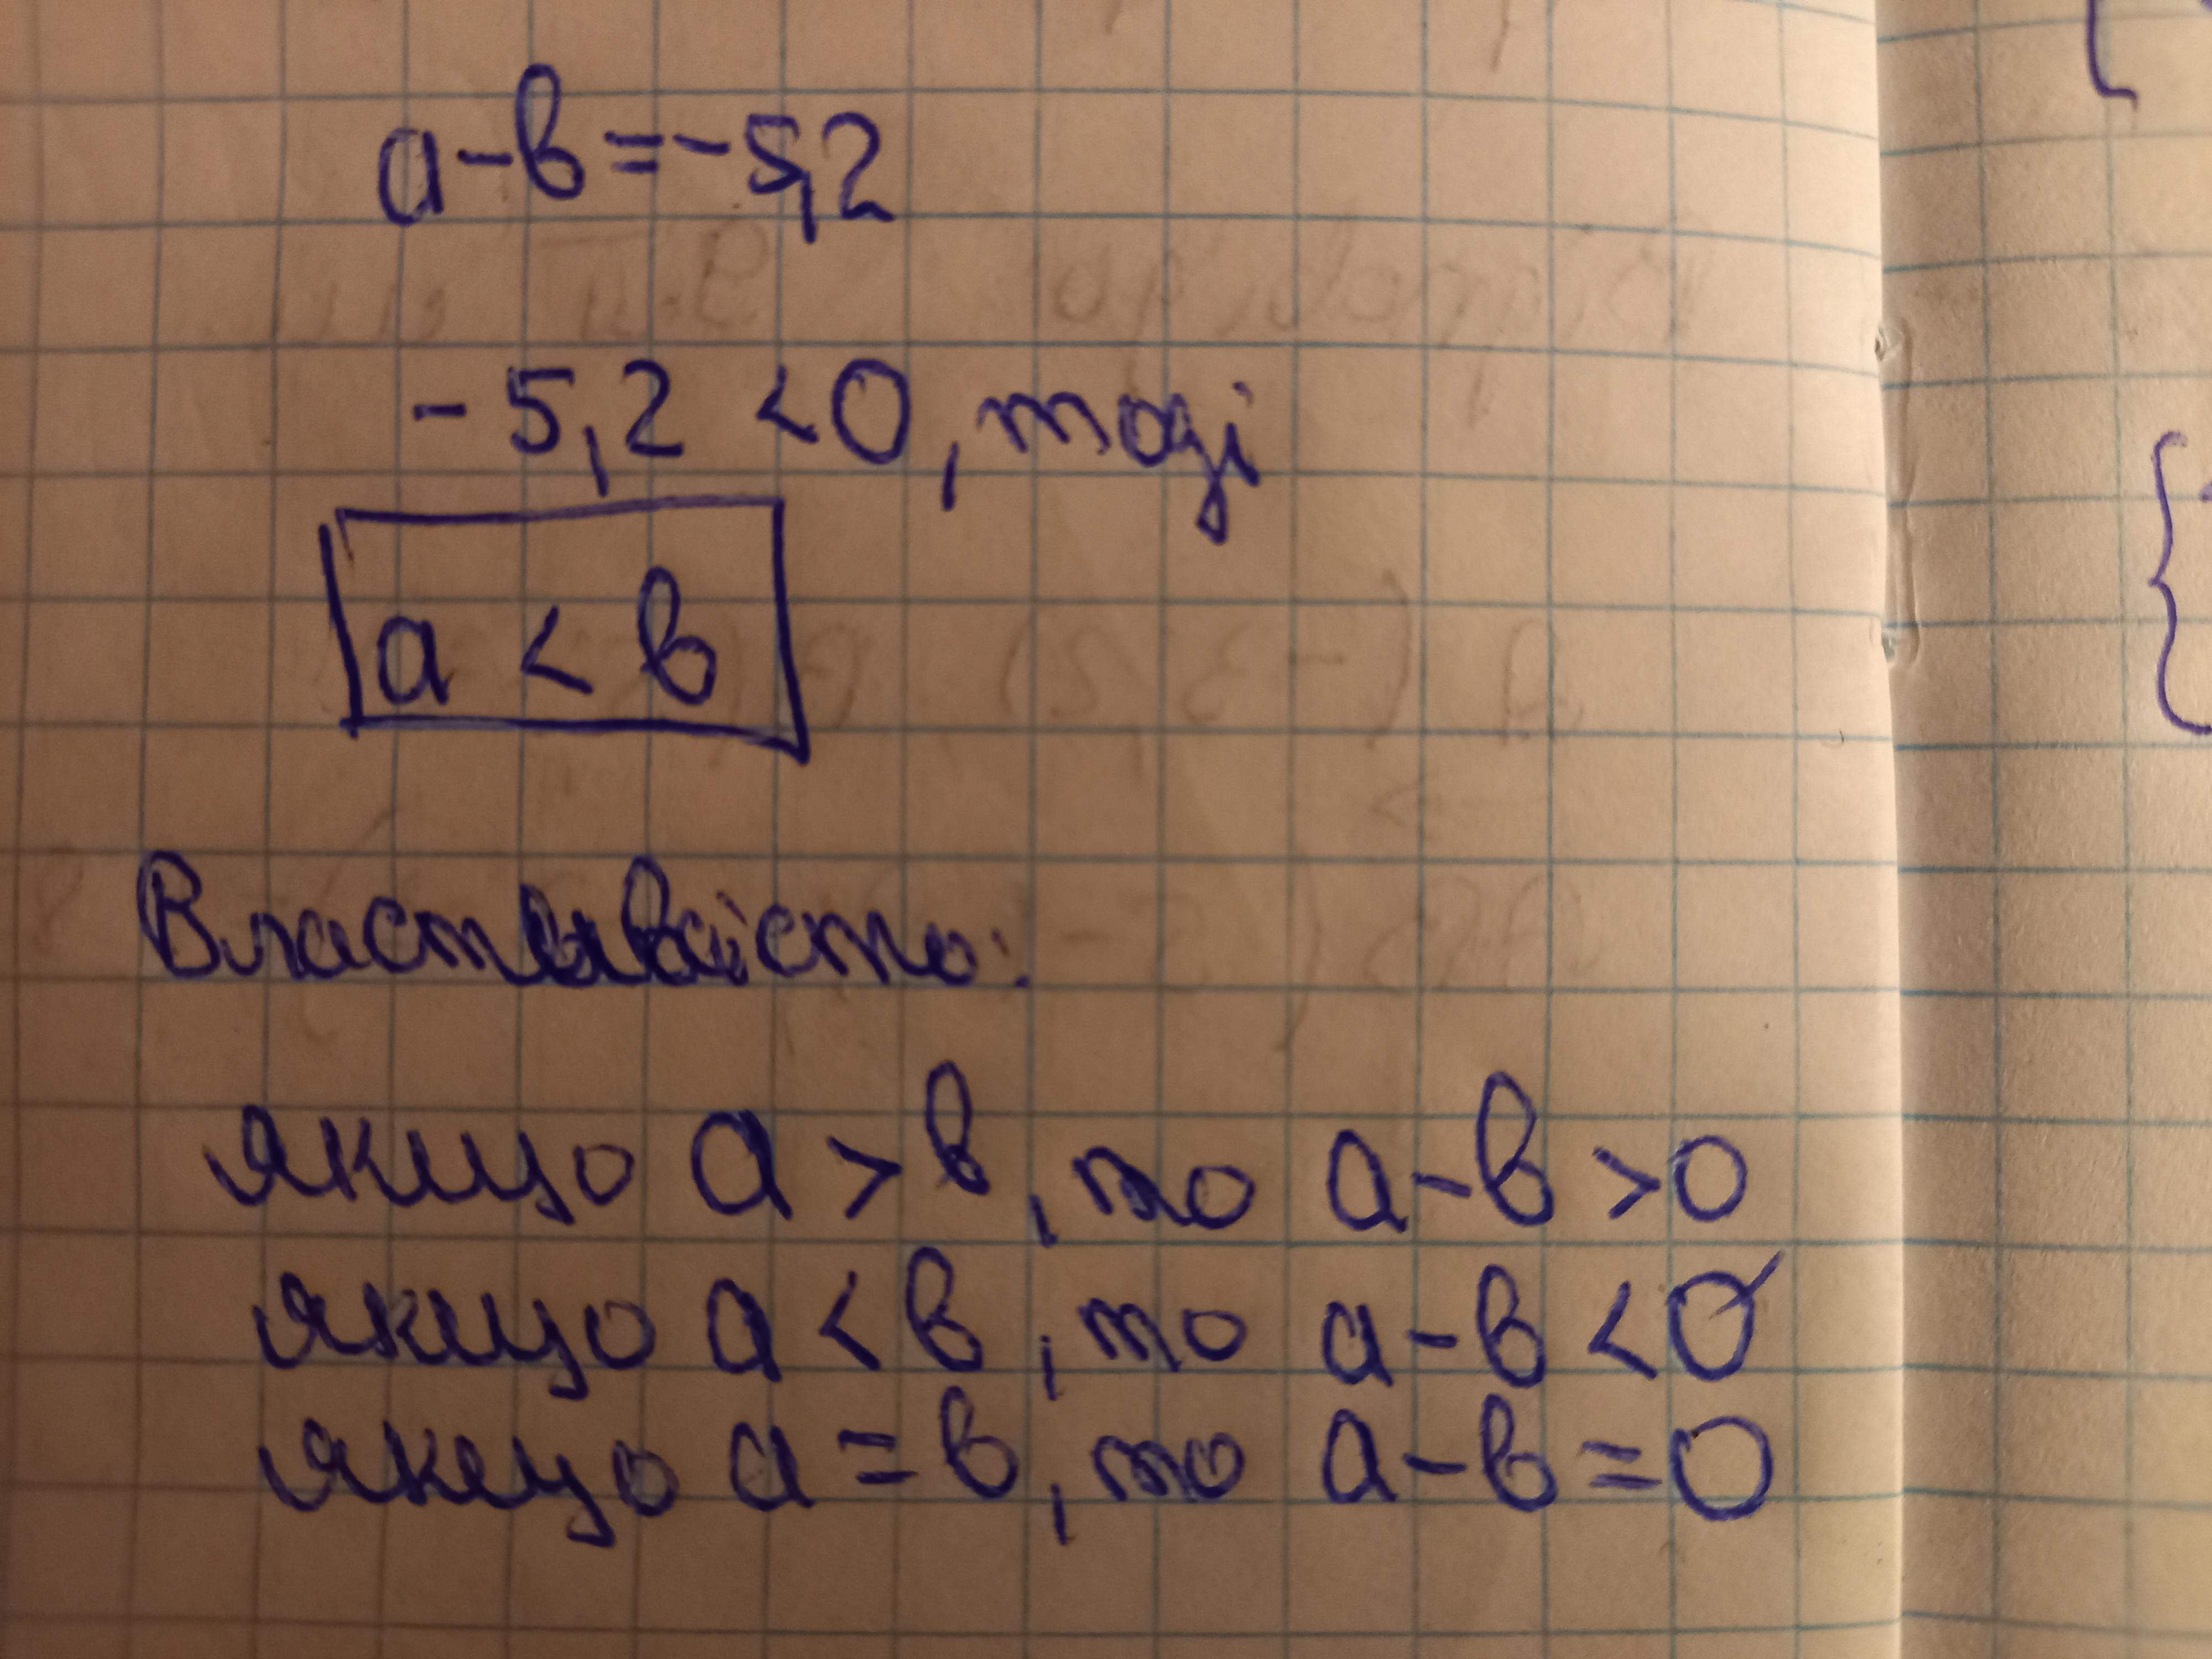 a-b=-5,2
-5,2 <0, тоді
a < b
Властивість:
якщо a > b, то a-b >0
якщо a < b, то a-b <0
якщо a = b, то a-b =0